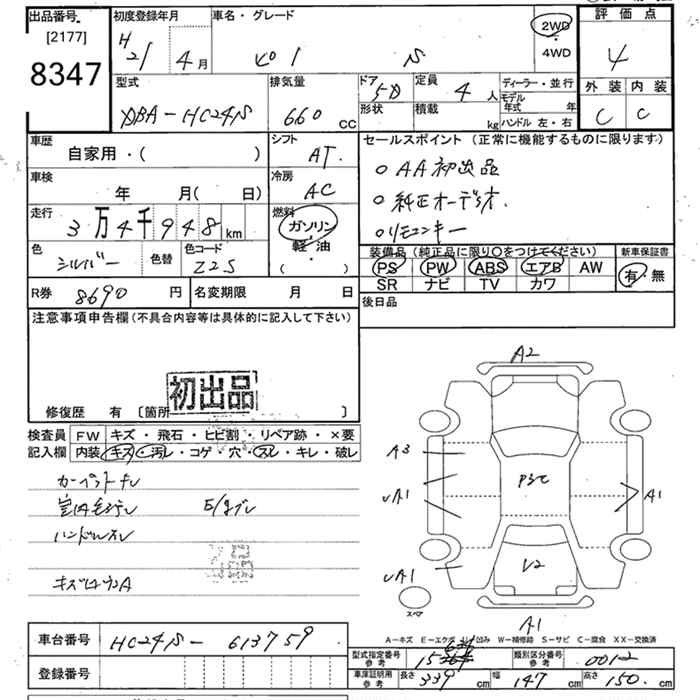 出品番号 初度登録年月 車名・グレード 2WD 4WD 評価点
[2177]
8347
H21 4月 ピノ S 4
型式 排気量 ドア 5D 定員 4人 ディーラー・並行 外装 内装
DBA-HC24S 660 CC 形状 積載 kg モデル年式 年 C C
ハンドル 左・右
車歴 シフト セールスポイント (正常に機能するものに限ります)
自家用・( ) AT
車検 冷房 ○AA初出品
年 月( 日) AC ○純正オーデオ
走行 燃料 ○リモコンキー
3万4千948km ガソリン
軽油
( )
色 シルバー 色替 色コード Z2S
装備品 (純正品に限り○をつけてください) 新車保証書
PS PW ABS エアB AW 有 無
SR ナビ TV カワ
R券 8690円 名変期限 月 日 後日品
注意事項申告欄 (不具合内容等は具体的に記入して下さい)
初出品
修復歴 有 [箇所 ]
検査員 FW キズ・飛石・ヒビ割・リペア跡・×要
記入欄 内装 キズ・汚レ・コゲ・穴・スレ・キレ・破レ
カーペット
ハンドルスレ
A2
A3
A1
A1
A1
V2
A1
スペア
A-キズ E-エクボ U-凹み W-補修跡 S-サビ C-腐食 XX-交換済
車台番号 HC24S-613759
登録番号
型式指定番号 参考 類別区分番号 参考 0012
車庫証明用 参考 長さ 339cm 幅 147cm 高さ 150cm